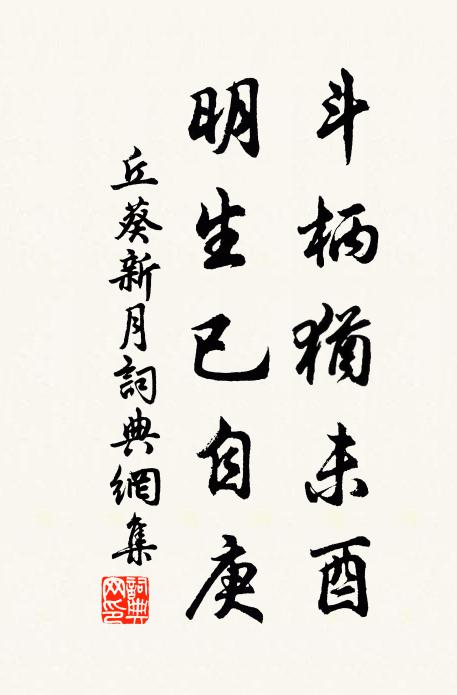 斗柄猶未酉
明生已自庚
丘葵新月詞典網集
詞典網印